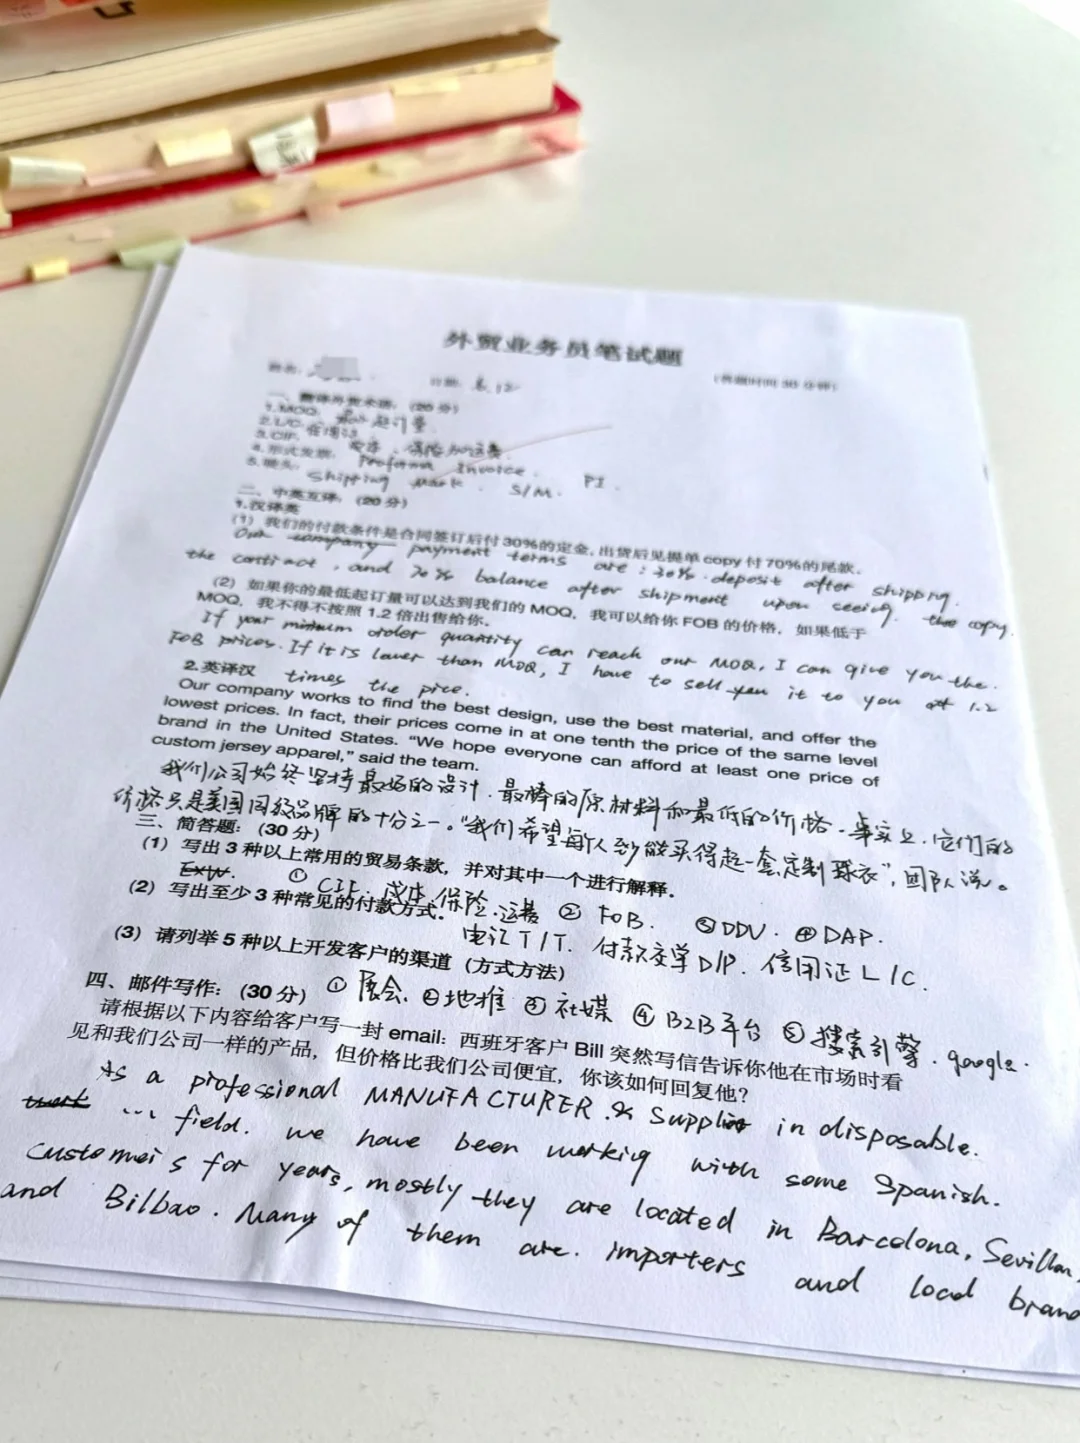 外贸业务员笔试题
姓名：
日期：
（答题时间 30 分钟）
一、翻译外贸术语：（20 分）
1.MOQ: 最小起订量
2.L/C: 信用证
3.CIF: 成本、保险加运费
4.形式发票: Proforma Invoice. PI.
5.唛头: Shipping Mark. S/M.
二、中英互译：（20 分）
1.汉译英
(1) 我们的付款条件是合同签订后付 30%的定金, 出货后见提单 copy 付 70%的尾款.
Our company payment terms are: 30% deposit after shipping.
the contract, and 70% balance after shipment upon seeing the copy.
(2) 如果你的最低起订量可以达到我们的 MOQ，我可以给你 FOB 的价格，如果低于
MOQ，我不得不按照 1.2 倍出售给你.
If your minimum order quantity can reach our MOQ, I can give you the.
FOB prices. If it is lower than MOQ, I have to sell you it to you at 1.2
times the price.
2.英译汉
Our company works to find the best design, use the best material, and offer the
lowest prices. In fact, their prices come in at one tenth the price of the same level
brand in the United States. “We hope everyone can afford at least one price of
custom jersey apparel,” said the team.
我们公司始终坚持最好的设计、最棒的原材料和最低的价格。事实上，它们的
价格只是美国同级品牌的十分之一。“我们希望每个人到能买得起一套定制球衣”，团队说。
三、简答题：（30 分）
(1) 写出 3 种以上常用的贸易条款，并对其中一个进行解释.
Exw. ① CIF. 成本、保险、运费 ② FOB. ③ DDU. ④ DAP.
(2) 写出至少 3 种常见的付款方式.
电汇 T/T. 付款交单 D/P. 信用证 L/C.
(3) 请列举 5 种以上开发客户的渠道（方式方法）
① 展会 ② 地推 ③ 社媒 ④ B2B平台 ⑤ 搜索引擎. google.
四、邮件写作：（30 分）
请根据以下内容给客户写一封 email：西班牙客户 Bill 突然写信告诉你他在市场时看
见和我们公司一样的产品，但价格比我们公司便宜，你该如何回复他？
As a professional MANUFACTURER & Supplier in disposable.
... field. we have been working with some Spanish.
customers for years, mostly they are located in Barcelona,
and Bilbao. Many of them are. importers and local brand